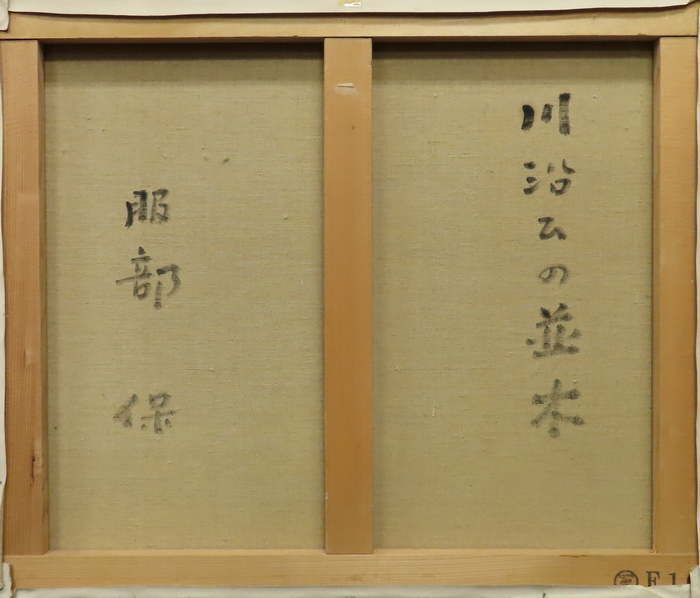 川沿の並木
服部 保
F1